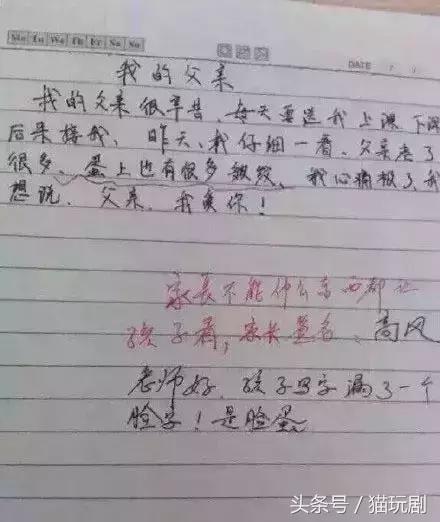 Mo Tu We Th Fr Sa Su
DATE / /
我的父亲
我的父亲很辛苦、每天要送我上课下课
后来接我、昨天、我仔细一看、父亲老了
很多、蛋上也有很多皱纹、我心痛极了、我
想说、父亲、我爱你！
家长不能什么东西都让
孩子看，家长签名、高风
老师好、孩子写字漏了一个
脸字！是脸蛋
头条号 / 猫玩剧